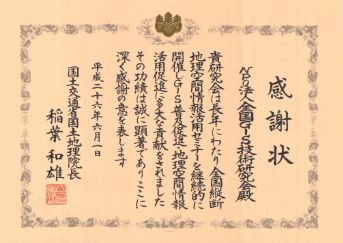 感謝状
NPO法人全国GIS技術研究会殿
貴研究会は長年にわたり全国縦断
地理空間情報活用セミナーを継続的に
開催しGIS普及促進と地理空間情報
活用促進に多大な貢献をされました
その功績は誠に顕著でありここに
深く感謝の意を表します
平成二十六年六月一日
国土交通省国土地理院長
稲葉和雄